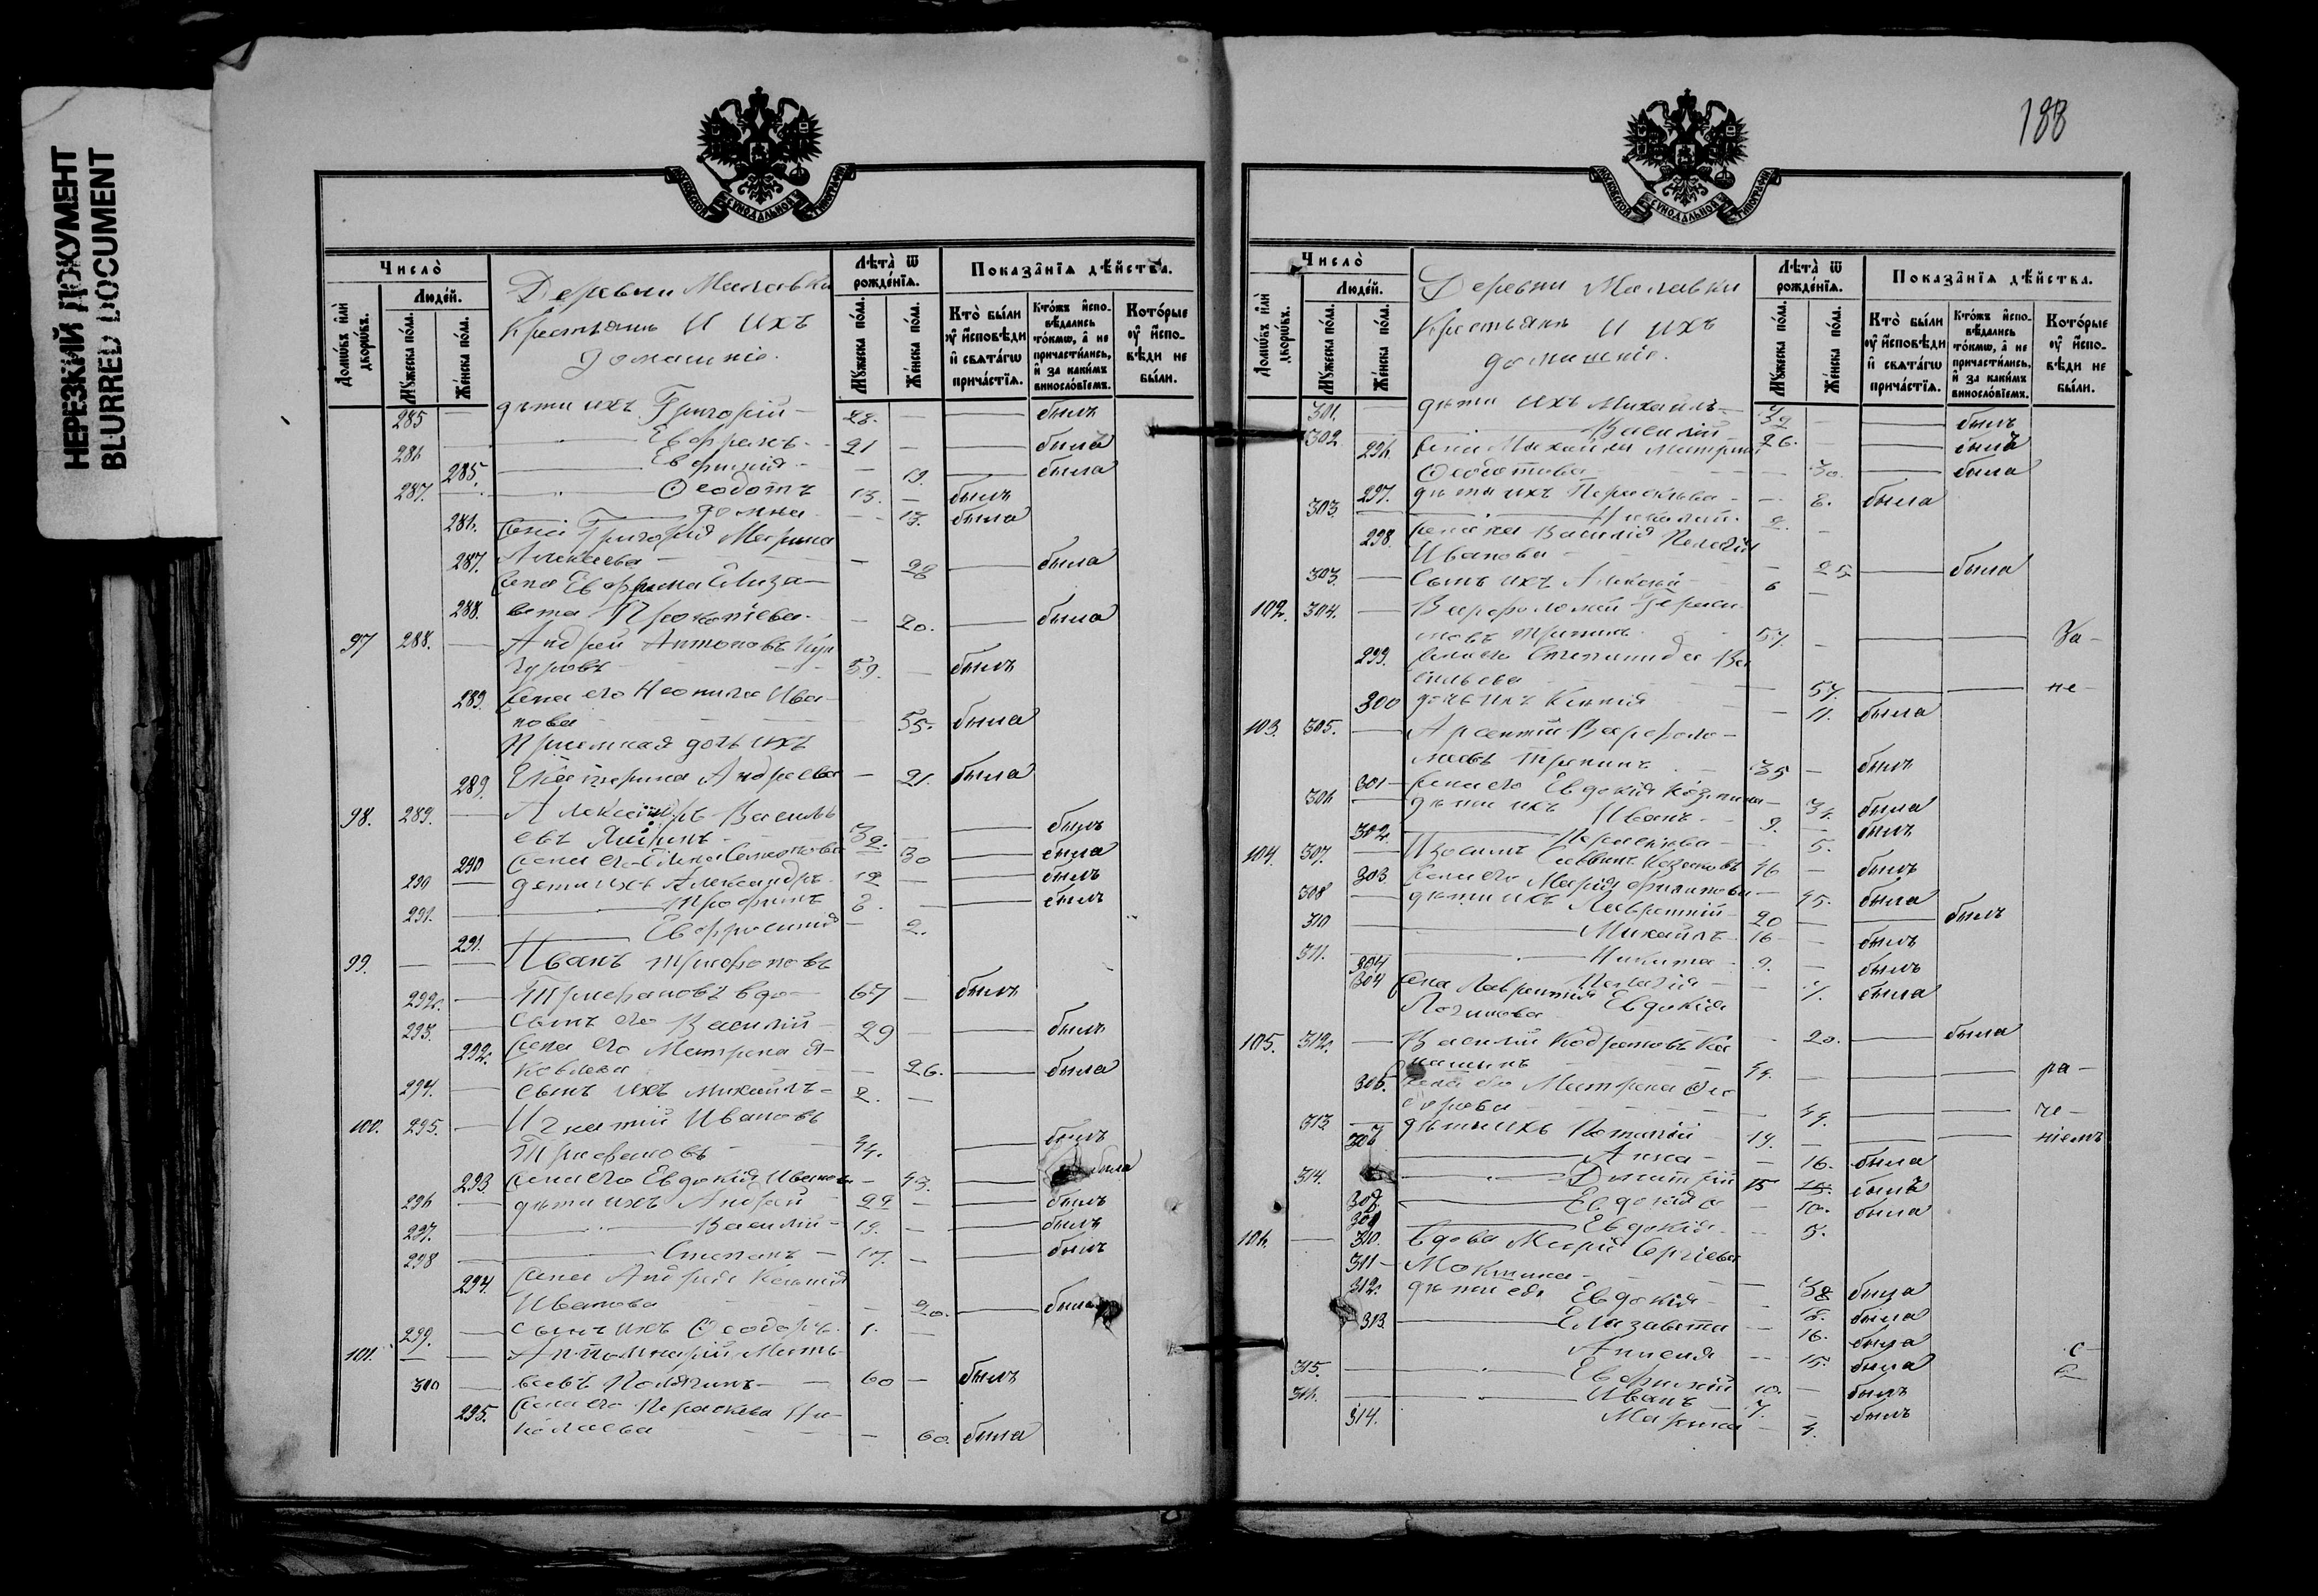 НЕРЕЗКИЙ ДОКУМЕНТ
BLURRED DOCUMENT
188
МОСКОВСКОЙ СУНОДАЛЬНОЙ ТИПОГРАФІИ
Число̀
Людей.
Домѡвъ и҆лѝ дворѡвъ.
Мꙋжеска по́ла.
Же́нска по́ла.
Деревни Малавки
Крестьяне и ихъ
домашніе.
Лѣта̀ ѿ рожде́нїѧ.
Мꙋжеска по́ла.
Же́нска по́ла.
Показа̑нїѧ дѣ́йства.
Кто̀ бы́ли оу҆ и҆сповѣди и҆ свѧта́гѡ прича́стїѧ.
Кто́жъ и҆спо- вѣдались то́кмѡ, а҆ не причасти́лись, и҆ за каки́мъ винослові́емъ.
Кото́рые оу҆ и҆спо- вѣди не бы́ли.
285 — дѣти ихъ Григорій — 28. — — былъ
286 — Евфремъ — 21 — — была
285. — Евфимія — — 19. — была
287. — Ѳеодотъ 13. — былъ
286. Домна — 13. была
жена Григорія Марина
287. Алексеева — — 28 — была
жена Евфрема Елиза-
288. вета Прокопіева — 20. — была
97 288. — Андрей Антоновъ
59. — былъ
289. жена его Неонила Ива-
нова — 55. была
Приемная дочь ихъ
289. Екатерина Андреева — 21. была
98. 289. — Александръ Василь
евъ 32. — — былъ
290 жена его Елена Семенова 30 — была
290 — дети ихъ Александръ 12 — — былъ
291. — Трофимъ 8. — — былъ
291. — Евфросинія — 2.
99. — — Иванъ Трифоновъ
292. — Трифановъ вдо — 67 — былъ
293. — сынъ его Василій — 29 — — былъ
292. жена его Матрена Я-
ковлева — 26. — была
294. — сынъ ихъ Михаилъ — 2. —
100. 295. — Игнатій Ивановъ
Трифановъ — 44. — былъ
293. жена его Евдокія Иванова — 43. — была
296 — дѣти ихъ Андрей — 22 — — былъ
297. — Василій — 19. — — былъ
298 — Степанъ — 17. — — былъ
294. жена Андрея Ксенія
Иванова — 20. — была
299. — сынъ ихъ Ѳеодоръ 1. —
101. — — Апполинарій Матв-
300 — веевъ 60 — былъ
295. жена его Параскева Ни-
колаева — 60. была
МОСКОВСКОЙ СУНОДАЛЬНОЙ ТИПОГРАФІИ
Число̀
Людей.
Домѡвъ и҆лѝ дворѡвъ.
Мꙋжеска по́ла.
Же́нска по́ла.
Деревни Малавки
Крестьяне и ихъ
домашніе.
Лѣта̀ ѿ рожде́нїѧ.
Мꙋжеска по́ла.
Же́нска по́ла.
Показа̑нїѧ дѣ́йства.
Кто̀ бы́ли оу҆ и҆сповѣди и҆ свѧта́гѡ прича́стїѧ.
Кто́жъ и҆спо- вѣдались то́кмѡ, а҆ не причасти́лись, и҆ за каки́мъ винослові́емъ.
Кото́рые оу҆ и҆спо- вѣди не бы́ли.
301. — дѣти ихъ Михаилъ — 32 — — былъ
302. — Василій 26. — — былъ
296. жена Михаила Матрена
Ѳедотова — 30. — была
297. дѣти ихъ Параскева — 8. была
303. — Николай 2. —
298. жена Василія Пелагія
Иванова — 25 — была
303. — сынъ ихъ Алексій 6 —
102. 304. — Варфоломей Гераси-
мовъ 57. — — — За-
299. жена его Степанида Ва
сильева — 57. — — не-
300 дочь ихъ Ксенія — 11. была
103. 305. — Арсентій Варфоло-
меевъ 35 — былъ
301 — жена его Евдокія Козмина — 34. была
306 — дѣти ихъ Иванъ 9. — былъ
302. — Параскева — 5.
104. 307. — Изосимъ Саввинъ 46 — былъ
303. жена его Марія Филипова — 45. была
308 — дѣти ихъ Лаврентій 20 — — былъ
310 — Михаилъ 16 — былъ
311. — Никита 9. — былъ
304 Пелагія — 7. была
304 жена Лаврентія Евдокія
Логинова — 20. — была
105. 312. — Василій Кодратовъ Ка
44. — — — ра-
305. жена его Матрена Ѳе
дорова — 44. — — че-
313 — дѣти ихъ Потапій 19. — — — ніемъ
306 Анна — 16. была
314. — Димитрій 15 былъ
308. Евдокія — 10. была
309 Евдокія — 5.
106. — 310. вдова Марія Сергіева
311 — Мокшина — 38 была
312. дѣти ея Евдокія — 18. была
313. — Елизавета — 16. была
Аннсия — 15. была
315. — Евфимій 10. — былъ
316. — Иванъ 7. — былъ
314. Марѳа — 4.